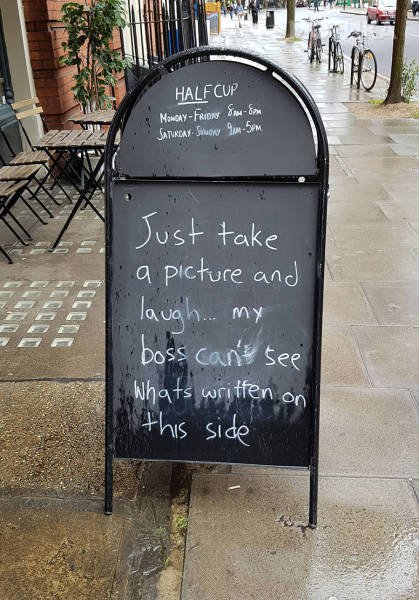 HALFCUP
MONDAY-FRIDAY 8AM-6PM
SATURDAY-SUNDAY 9AM-5PM
Just take
a picture and
laugh... my
boss can't see
Whats written on
this side